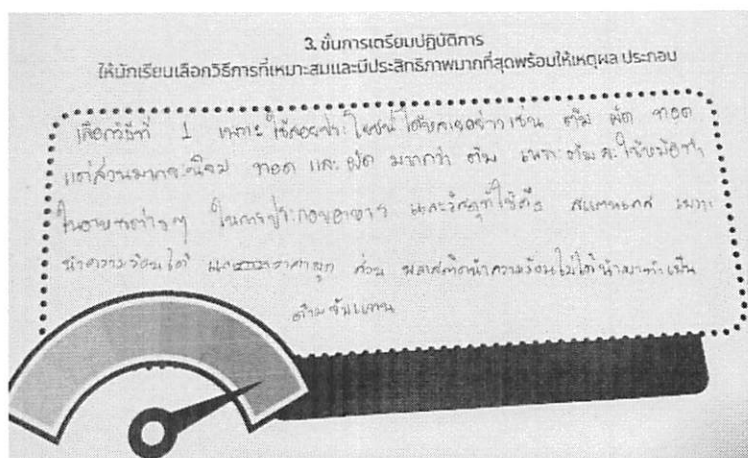 3. ขั้นการเตรียมปฏิบัติการ
ให้นักเรียนเลือกวิธีการที่เหมาะสมและมีประสิทธิภาพมากที่สุดพร้อมให้เหตุผล ประกอบ
เลือกวิธีที่ 1 เพราะ ใช้สอยประโยชน์ได้หลายอย่าง เช่น ต้ม ผัด ทอด
แต่ส่วนมากจะนิยม ทอด และ ผัด มากกว่า ต้ม เพราะต้มจะใช้หม้อทำ
ในอาหารต่างๆ ในการประกอบอาหาร และวัสดุที่ใช้คือ สแตนเลส เพราะ
นำความร้อนได้ ราคาถูก ส่วน พลาสติกนำความร้อนไม่ได้นำมาทำเป็น
ด้ามจับแทน